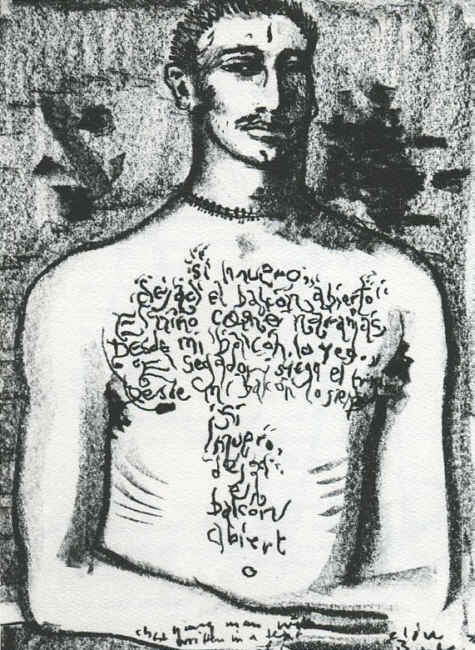 Si muero,
dejad el balcón abierto
El niño come naranjas
Desde mi balcón lo veo.
El segador siega el trig
Desde mi balcón lo sie
Si
muero,
dejad
el
balcón
abiert
young man
in a